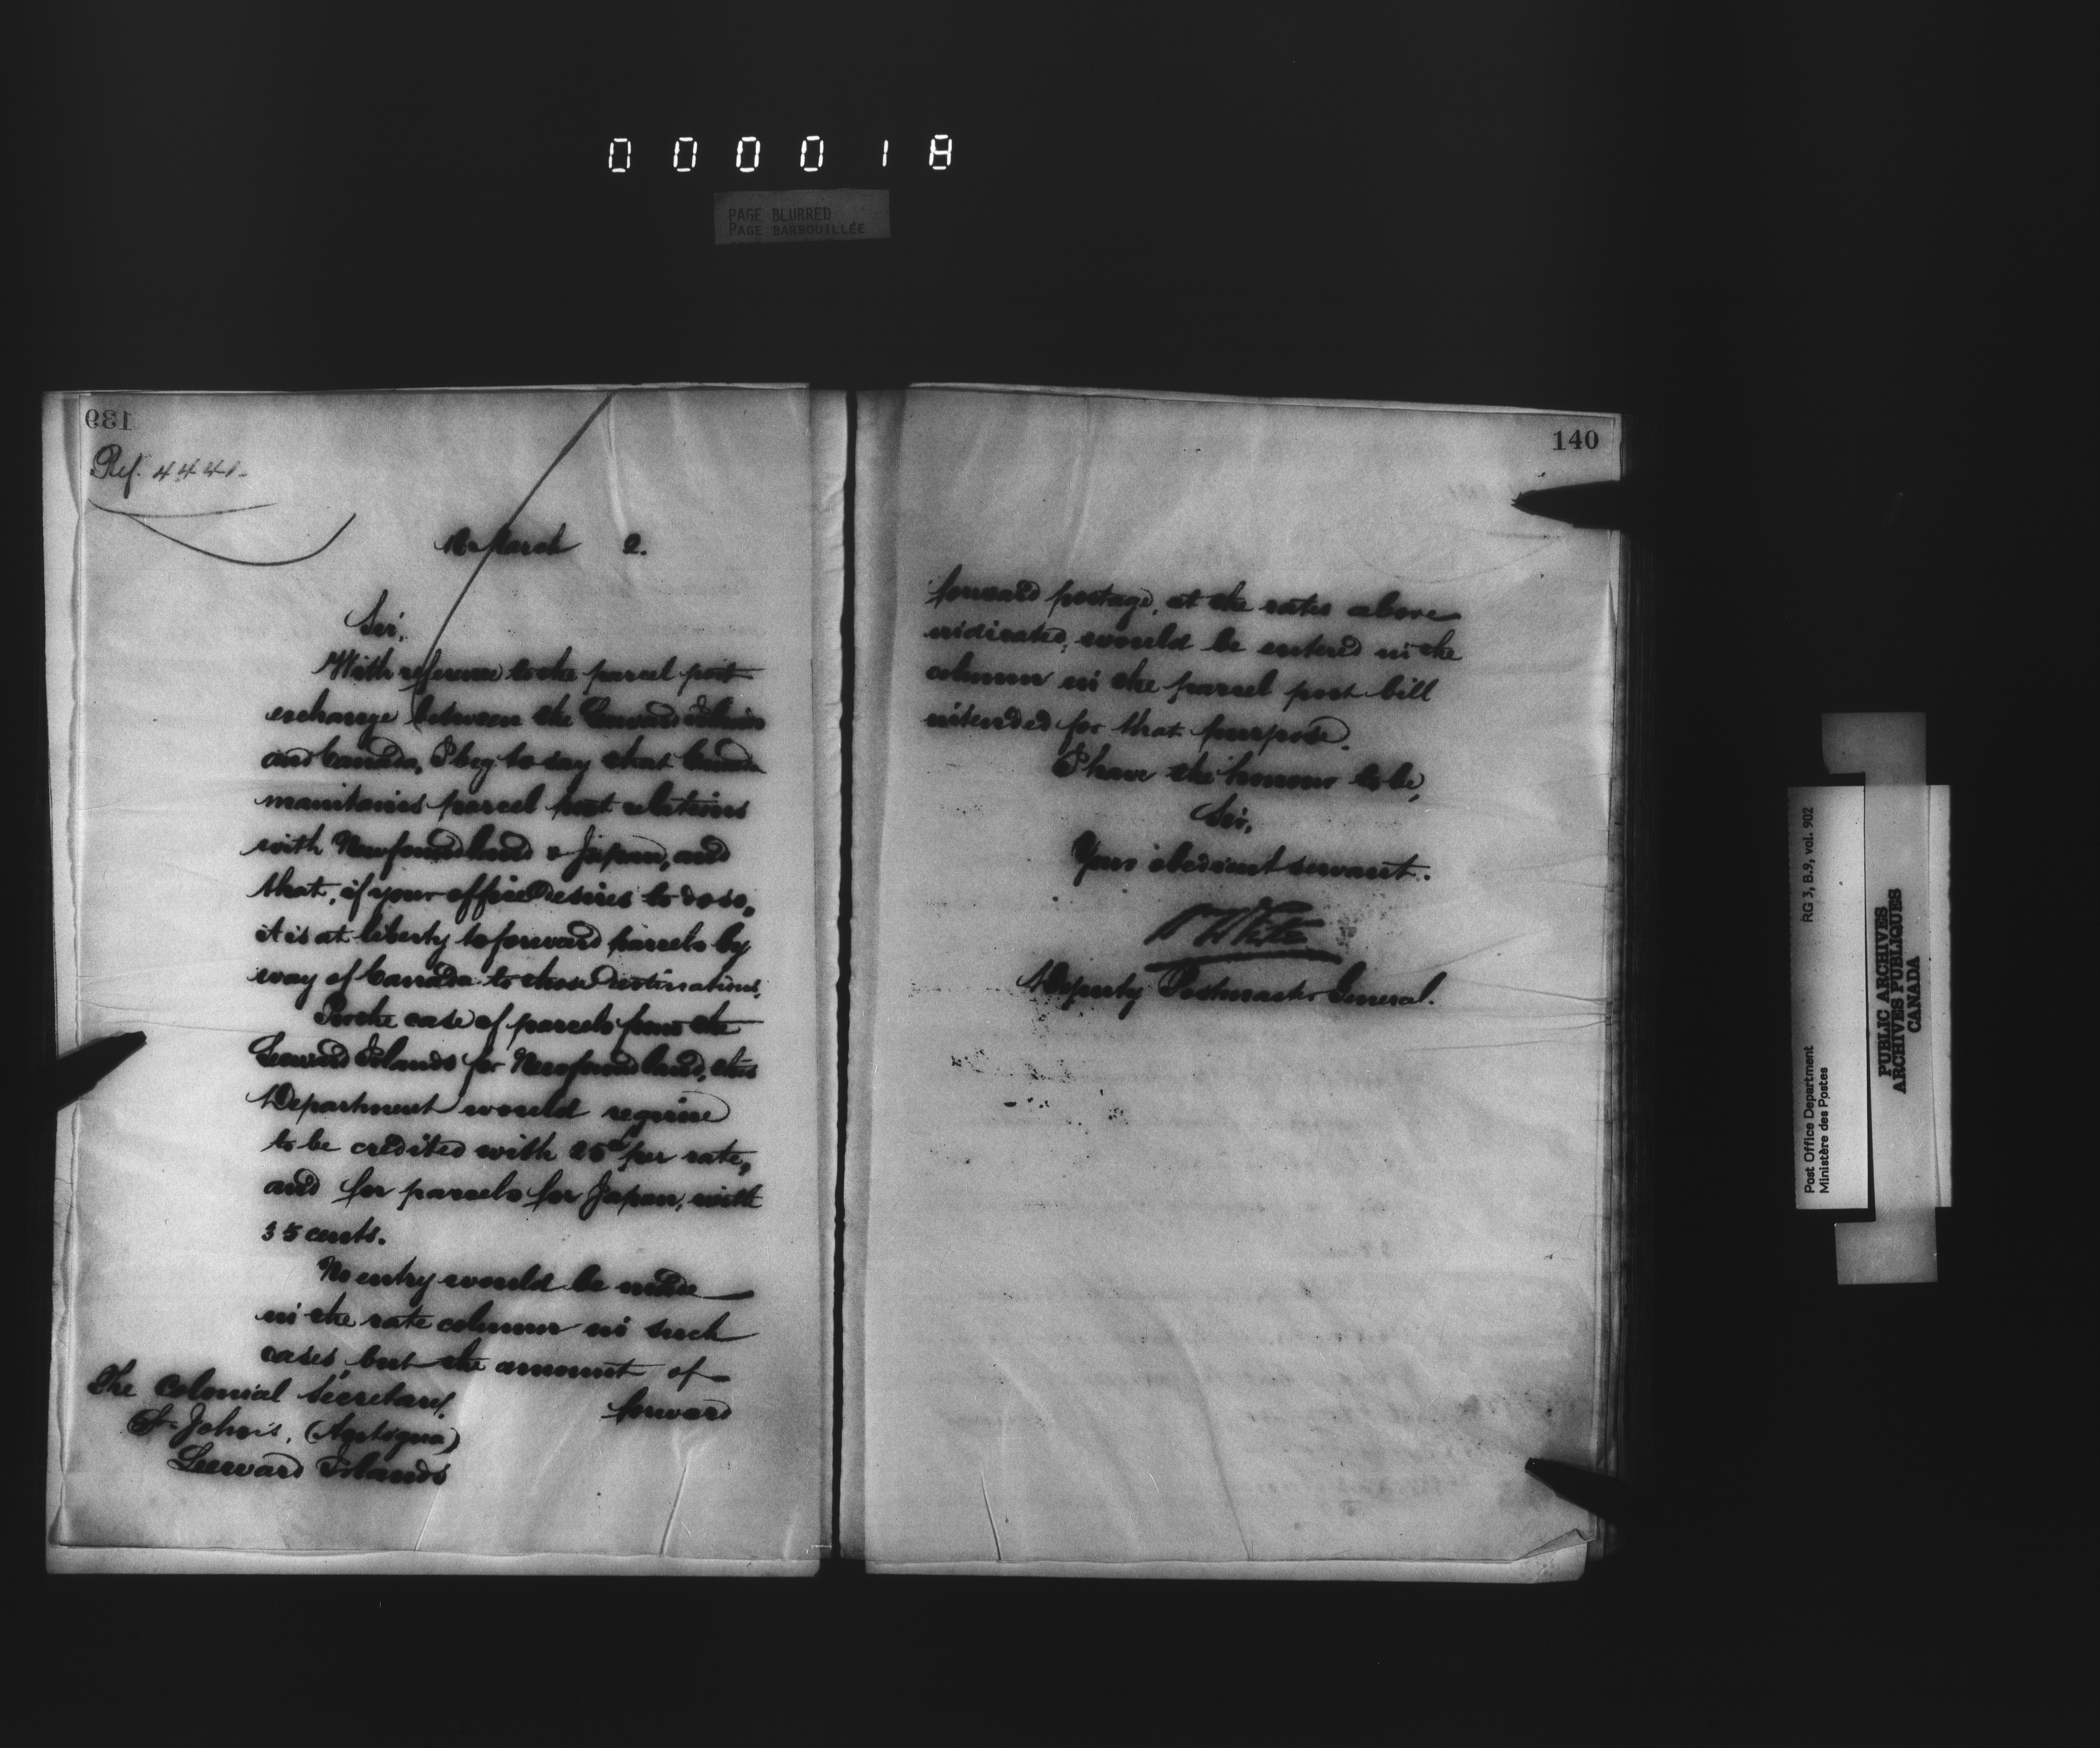 000018
PAGE BLURRED
PAGE BARBOUILLÉE
139
Ref. 4441.
March 2.
Sir,
With reference to the parcel post
exchange between the Leeward Islands
and Canada, I beg to say that Canada
maintains parcel post relations
with Newfoundland & Japan, and
that, if your office desires to do so,
it is at liberty to forward parcels by
way of Canada to those destinations.
In the case of parcels from the
Leeward Islands for Newfoundland, this
Department would require
to be credited with 25 per rate,
and for parcels for Japan, with
35 cents.
No entry would be made
in the rate column in such
cases, but the amount of
forward
The Colonial Secretary.
St. John's, (Antigua)
Leeward Islands
140
forward postage, at the rates above
indicated, would be entered in the
column in the parcel post bill
intended for that purpose.
I have the honour to be,
Sir,
Your obedient servant.
White
Deputy Postmaster General.
RG 3, B.9, vol. 902
Post Office Department
Ministère des Postes
PUBLIC ARCHIVES
ARCHIVES PUBLIQUES
CANADA